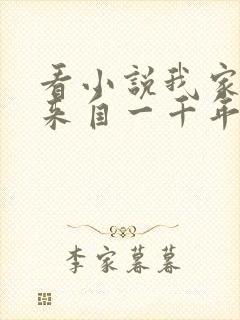 看小說我家
来自一千年
李家暮暮